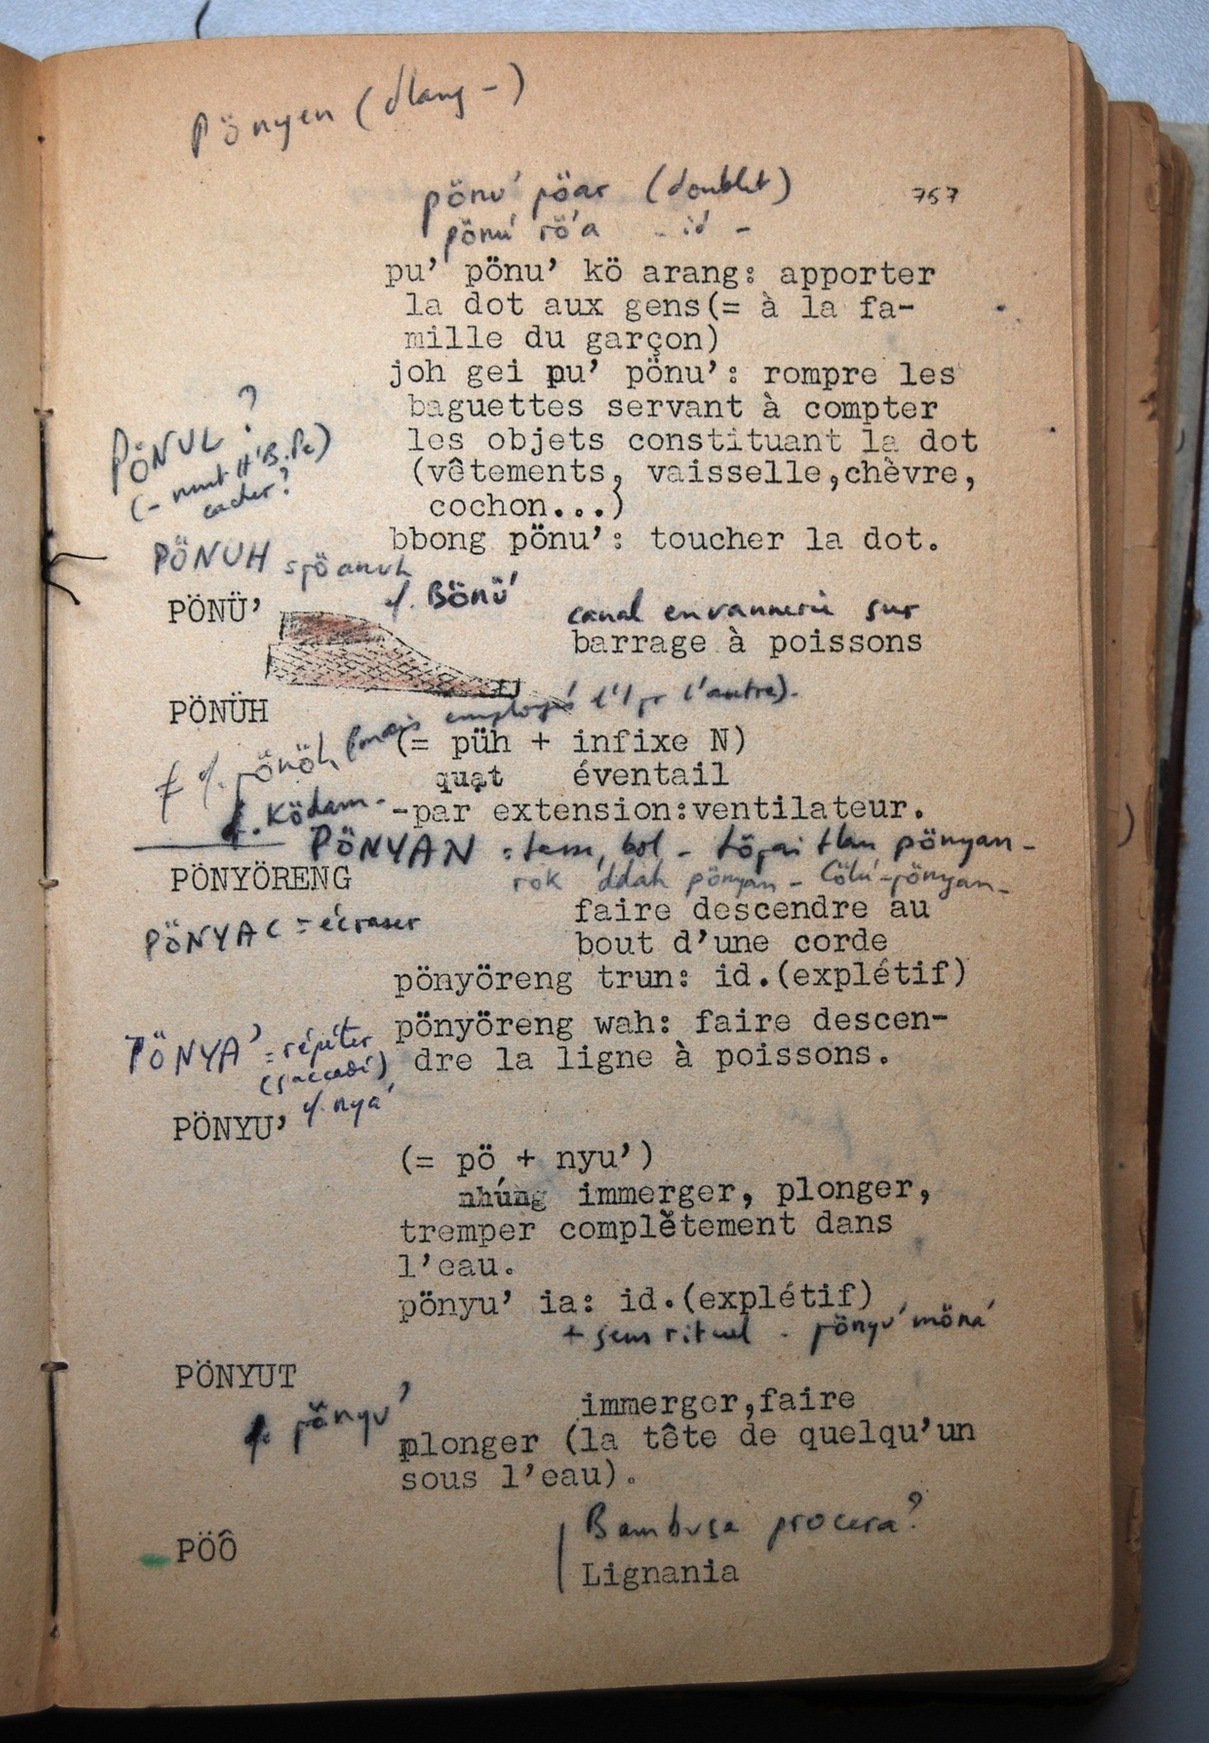 Pönyen (dlang -)
pönu' pöar (doublet)
757
pönu' rö'a - id -
pu' pönu' kö arang: apporter
la dot aux gens(= à la fa-
mille du garçon)
joh gei pu' pönu': rompre les
baguettes servant à compter
les objets constituant la dot
(vêtements, vaisselle,chèvre,
cochon...)
bbong pönu': toucher la dot.
PÖNUL ?
cacher?
PÖNUH
cf. Bönü'
PÖNÜ'
canal en vannerie sur
barrage à poissons
PÖNÜH
cf. pönöh (mais employés l'1 pr l'autre).
(= püh + infixe N)
quạt éventail
cf. Ködam -
-par extension:ventilateur.
PÖNYAN = tern, bol - töpai tlan pönyan -
rok ddah pönyan - Cölu'-pönyan -
PÖNYÖRENG
faire descendre au
bout d'une corde
PÖNYAC = écraser
pönyöreng trun: id.(explétif)
pönyöreng wah: faire descen-
dre la ligne à poissons.
PÖNYA' = répéter
(saccadé)
cf. nya'
PÖNYU'
(= pö + nyu')
nhúng immerger, plonger,
tremper complètement dans
l'eau.
pönyu' ia: id.(explétif)
+ sens rituel - pönyu' möna'
PÖNYUT
cf. pönyu'
immerger,faire
plonger (la tête de quelqu'un
sous l'eau).
PÖÔ
Bambusa procera?
Lignania